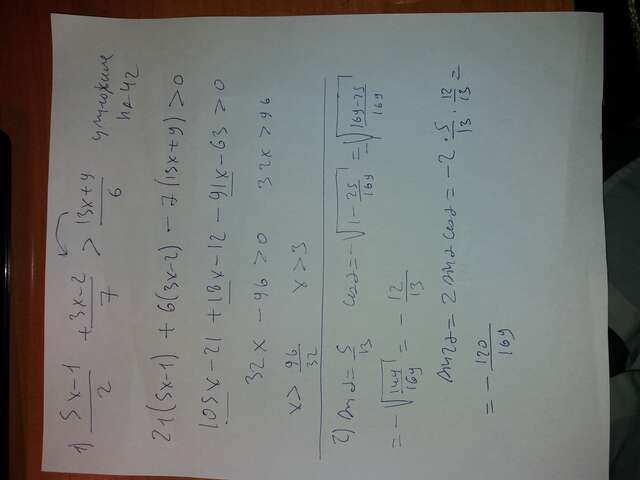 1) (5x-1)/2 + (3x-2)/7 > (13x+9)/6 умножил на 42
21(5x-1) + 6(3x-2) - 7(13x+9) > 0
105x - 21 + 18x - 12 - 91x - 63 > 0
32x - 96 > 0 32x > 96
x > 96/32 x > 3
2) sin α = 5/13 cos α = -√(1 - 25/169) = -√((169-25)/169)
= -√(144/169) = - 12/13
sin 2α = 2 sin α cos α = -2 · 5/13 · 12/13 =
= - 120/169